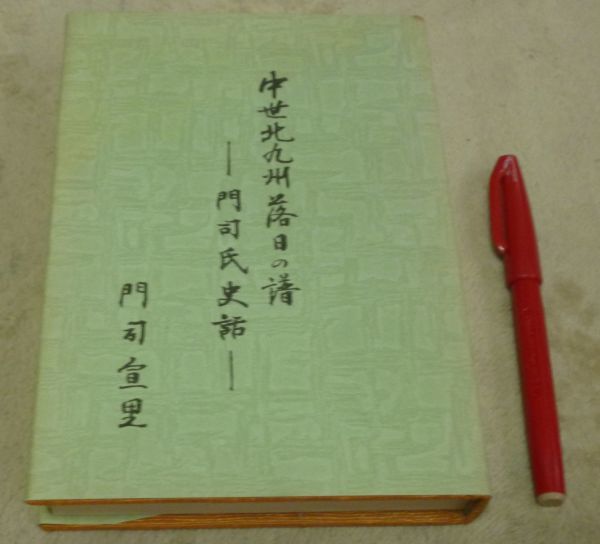 中世北九州落日の譜
―門司氏史話―
門司宣里